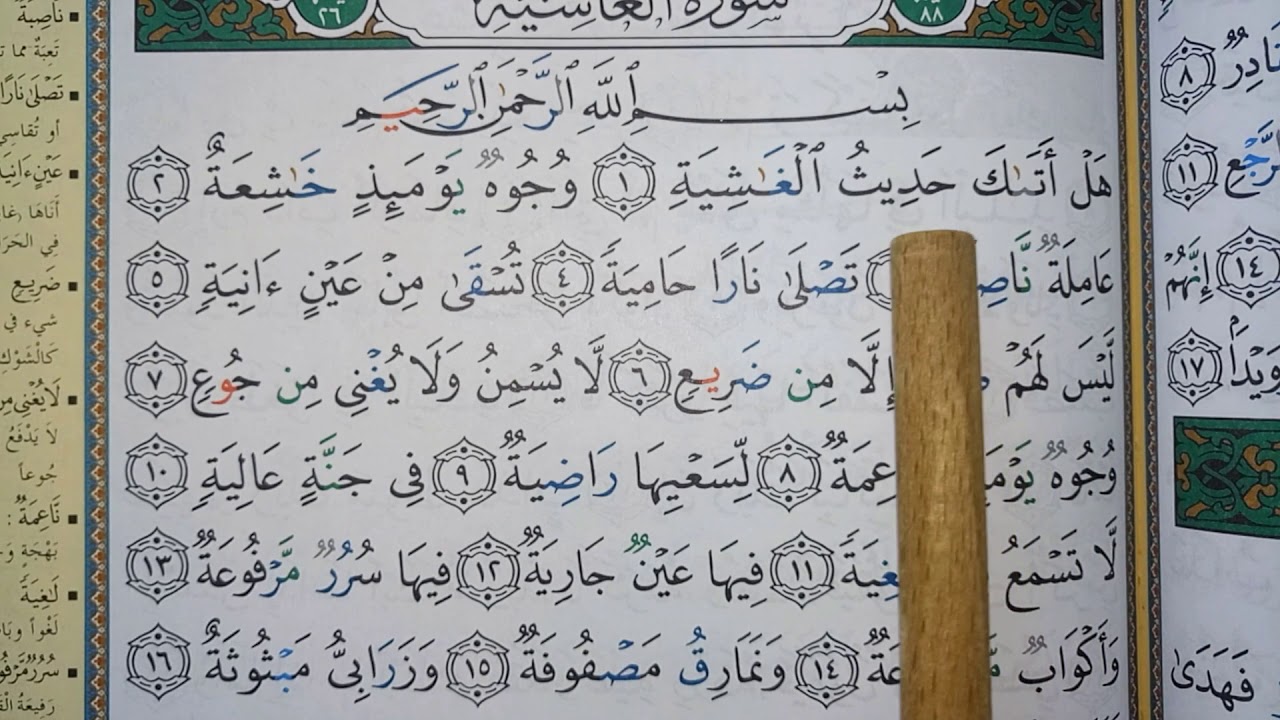 سورة الغاشية
٨٨
٢٦
بِسْمِ ٱللَّهِ ٱلرَّحْمَٰنِ ٱلرَّحِيمِ
هَلْ أَتَىٰكَ حَدِيثُ ٱلْغَٰشِيَةِ ١ وُجُوهٌ يَوْمَئِذٍ خَٰشِعَةٌ ٢
عَامِلَةٌ نَّاصِ تَصْلَىٰ نَارًا حَامِيَةً ٤ تُسْقَىٰ مِنْ عَيْنٍ ءَانِيَةٍ ٥
لَّيْسَ لَهُمْ إِلَّا مِن ضَرِيعٍ ٦ لَّا يُسْمِنُ وَلَا يُغْنِى مِن جُوعٍ ٧
وُجُوهٌ يَوْمَ عِمَةٌ ٨ لِّسَعْيِهَا رَاضِيَةٌ ٩ فِى جَنَّةٍ عَالِيَةٍ ١٠
لَّا تَسْمَعُ غِيَةً ١١ فِيهَا عَيْنٌ جَارِيَةٌ ١٢ فِيهَا سُرُرٌ مَّرْفُوعَةٌ ١٣
وَأَكْوَابٌ عَةٌ ١٤ وَنَمَارِقُ مَصْفُوفَةٌ ١٥ وَزَرَابِىُّ مَبْثُوثَةٌ ١٦
نَاصِبَةٌ
تَعِبَةٌ مما
تَصْلَىٰ نَارًا
أو تُقاسِي
عَيْنٍ ءَانِيَةٍ
أَنَاهَا
فِي الحَرَا
ضَرِيعٍ
شيء في
كَالشَّوْك
لَا يُغْنِى مِن
لَا يَدْفَعُ
جُوعاً
نَاعِمَةٌ :
بَهْجَةٍ وَ
لَٰغِيَةً
لَغْواً وبَا
سُرُرٌ مَّرْفُو
رَفِيعَةُ الْقَ
ٱلرَّجْعِ ١١
٨
١٤ إِنَّهُمْ
١٧
فَهَدَىٰ